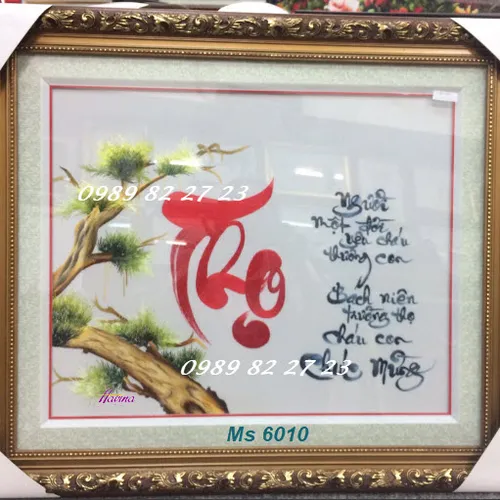 0989 82 27 23
Thọ
Người
một đời
yêu cháu
thương con
Bách niên
trường thọ
cháu con
Chúc mừng
0989 82 27 23
Havina
Ms 6010